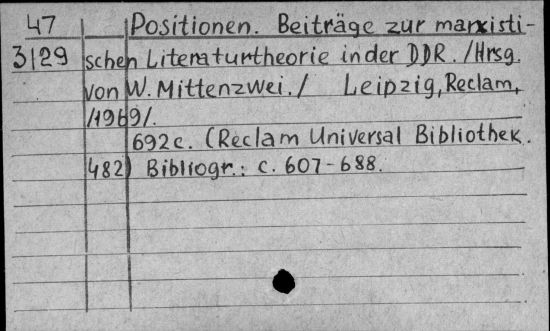 47 Positionen. Beiträge zur marxisti-
3129 schen Literaturtheorie in der DDR. /Hrsg.
von W. Mittenzwei./ Leipzig, Reclam,
/1969/.
692 c. (Reclam Universal Bibliothek.
482) Bibliogr.: c. 607-688.